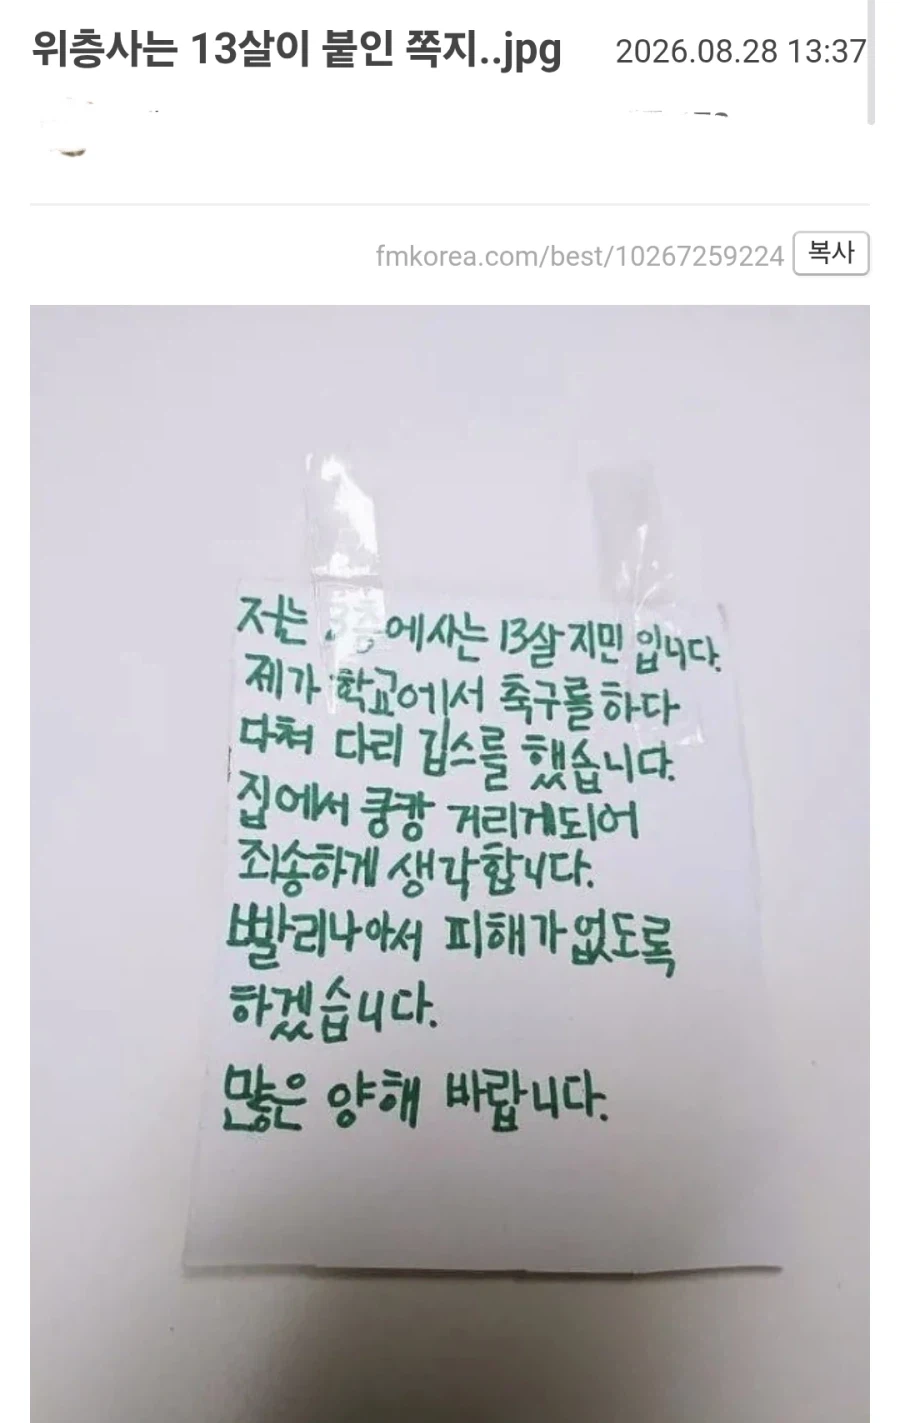 위층사는 13살이 붙인 쪽지..jpg
2026.08.28 13:37
fmkorea.com/best/10267259224
복사
저는 3층에사는 13살 지민 입니다.
제가 학교에서 축구를 하다
다쳐 다리 깁스를 했습니다.
집에서 쿵캉 거리게되어
죄송하게 생각합니다.
빨리나아서 피해가없도록
하겠습니다.
많은 양해 바랍니다.